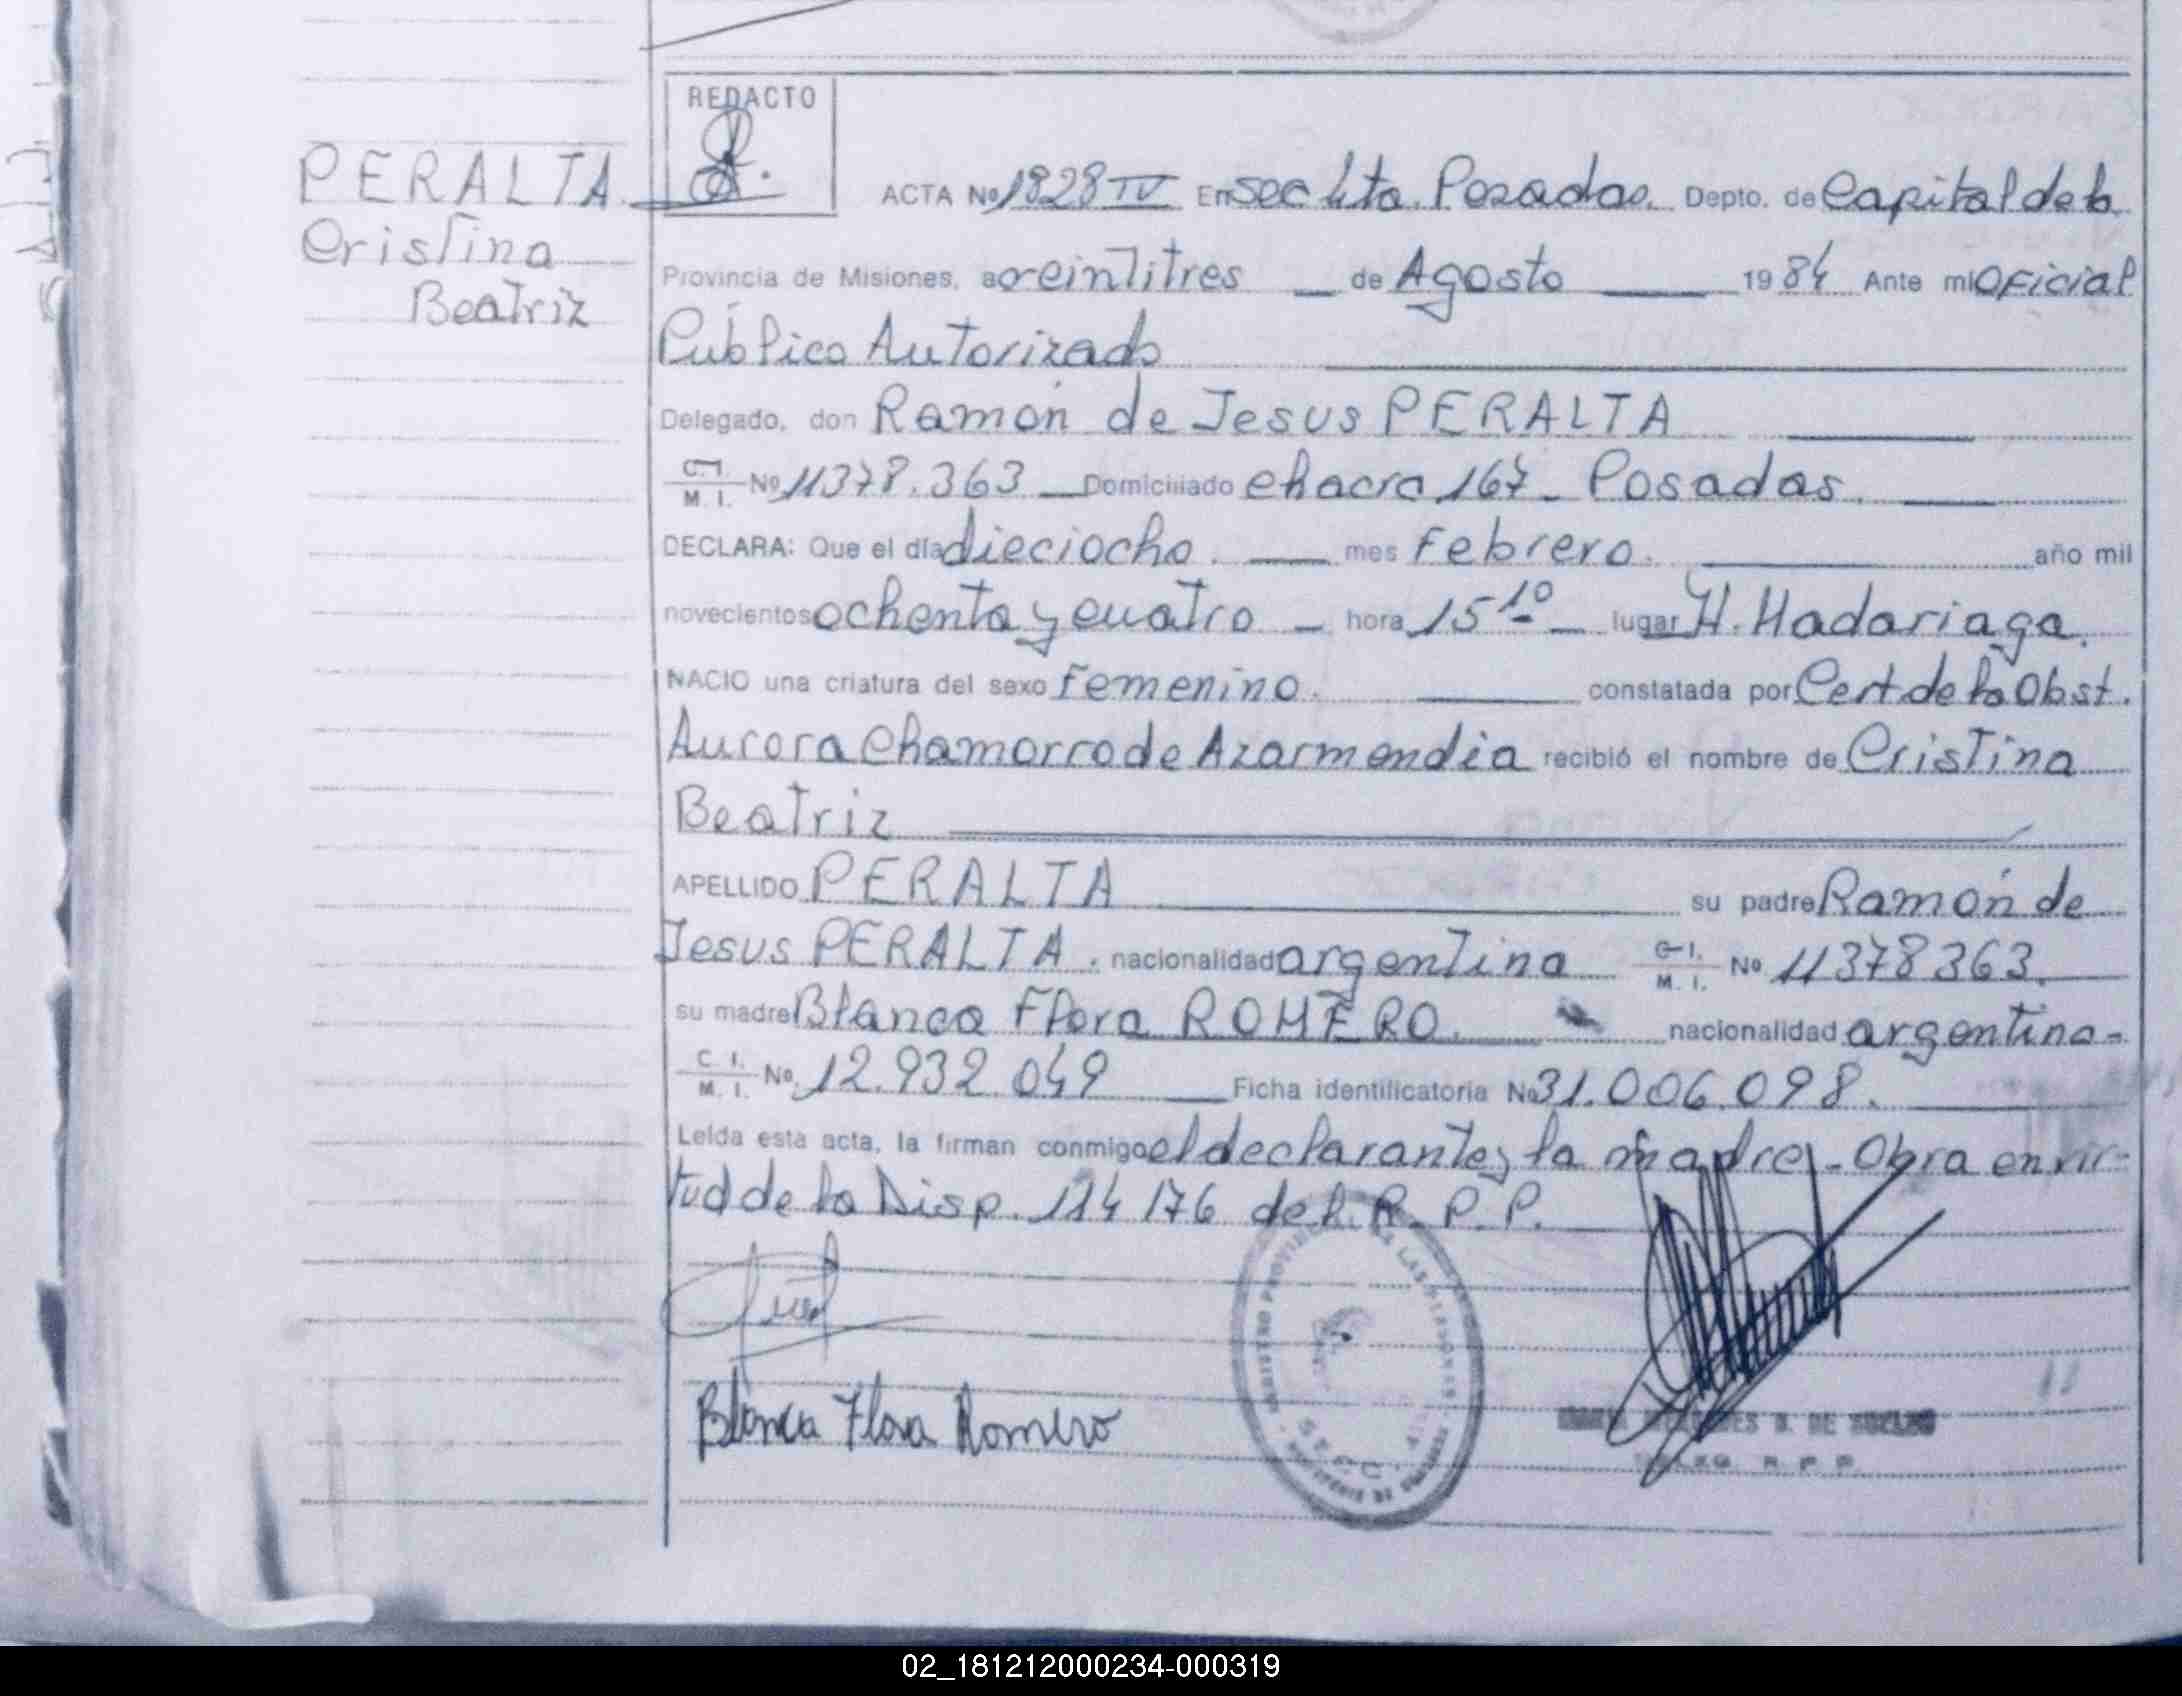 REDACTO
PERALTA
Cristina
Beatriz
ACTA Nº 1828 IV En sec 4ta. Posadas. Depto. de Capital de la
Provincia de Misiones, a veintitres de Agosto 1984 Ante mi Oficial
Público Autorizado
Delegado, don Ramón de Jesus PERALTA
C.I. M.I. Nº 11378.363 Domiciliado chacra 167 - Posadas.
DECLARA: Que el día dieciocho. mes Febrero. año mil
novecientos ochenta y cuatro hora 15 10 lugar H. Madariaga.
NACIO una criatura del sexo Femenino. constatada por Cert de la Obst.
Aurora Chamorro de Azarmendia recibió el nombre de Cristina
Beatriz
APELLIDO PERALTA su padre Ramón de
Jesus PERALTA. nacionalidad argentina C.I. M.I. Nº 11378363.
su madre Blanca Flora ROMERO. nacionalidad argentina-
C.I. M.I. Nº 12.932.049 Ficha identificatoria Nº 31.006.098.
Leída esta acta, la firman conmigo el declarante y la madre.- Obra en vir-
tud de la Disp. 114/76 del R.P.P.
Blanca Flora Romero
REGISTRO PROVINCIAL DE LAS PERSONAS
DE SUELDO
R. P. P.
02_181212000234-000319